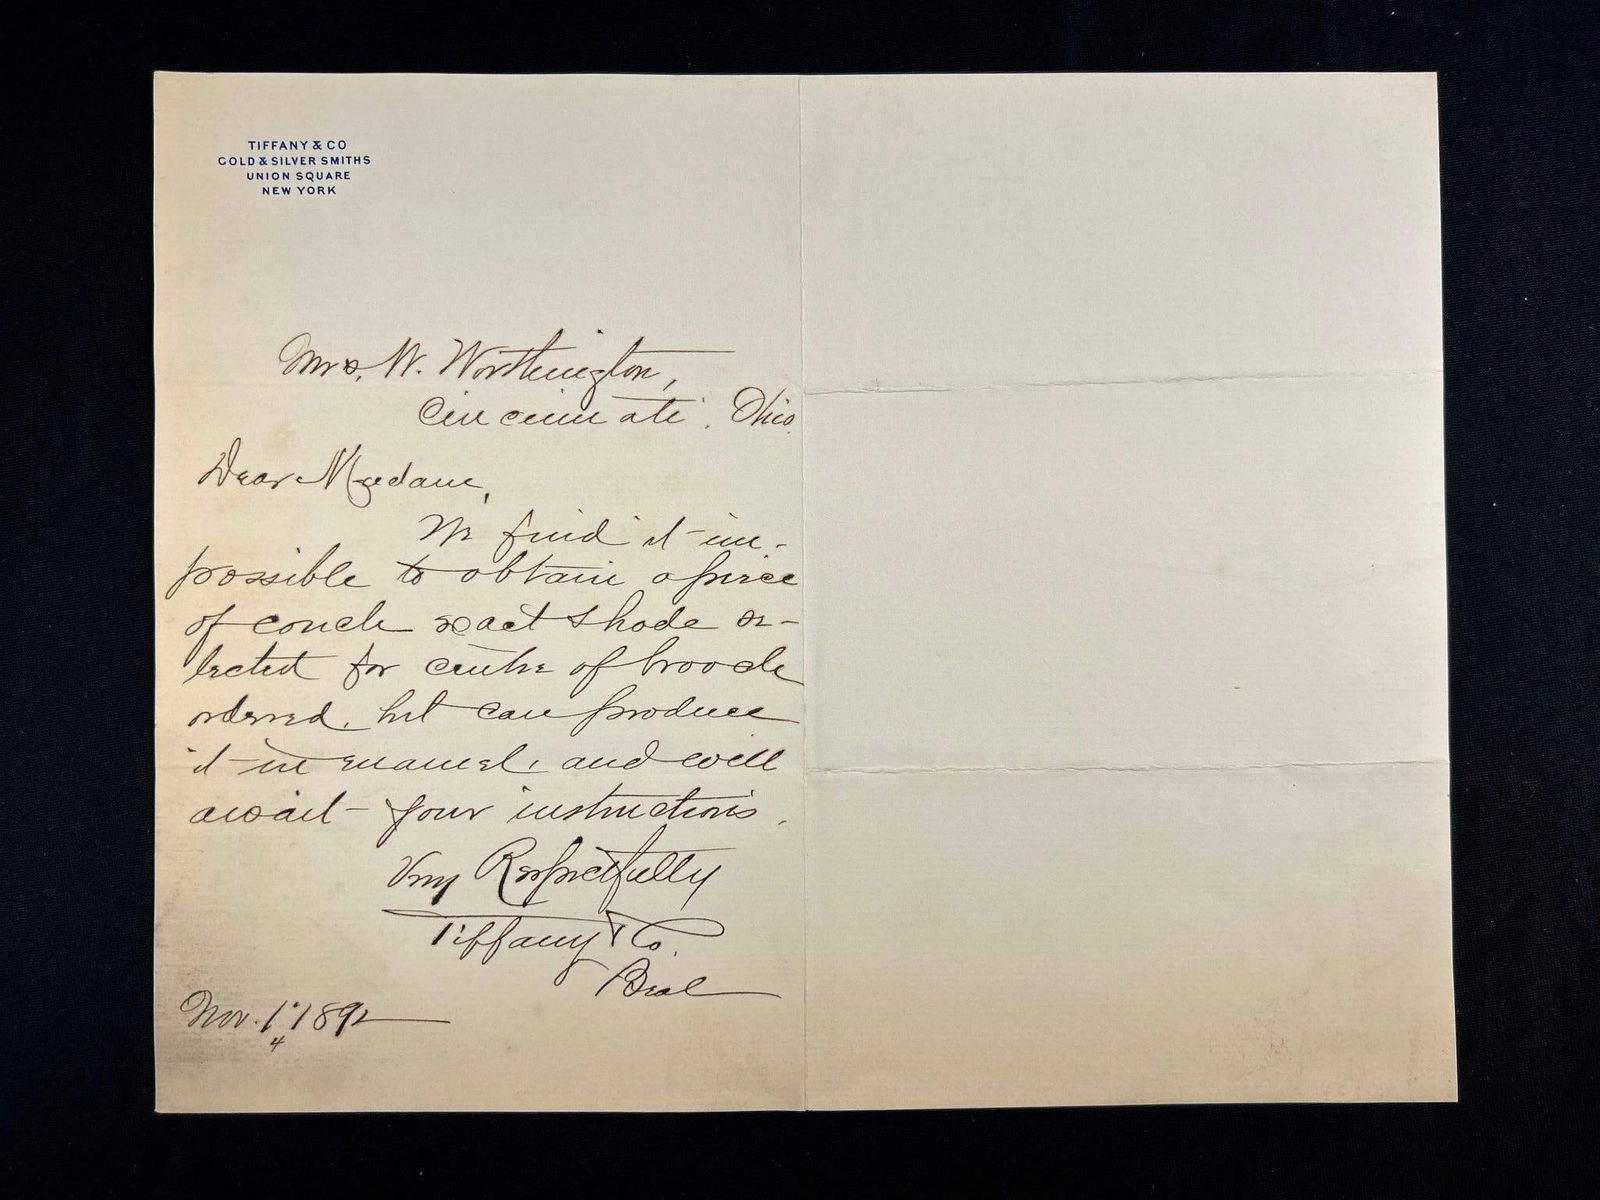 TIFFANY & CO
GOLD & SILVER SMITHS
UNION SQUARE
NEW YORK
Mrs. W. Worthington,
Cincinnati, Ohio.
Dear Madam,
We find it im-
possible to obtain a piece
of conch exact shade se-
lected for centre of brooch
ordered, but can produce
it in enamel, and will
await your instructions.
Very Respectfully
Tiffany & Co.
Nov. 1" 1892
4